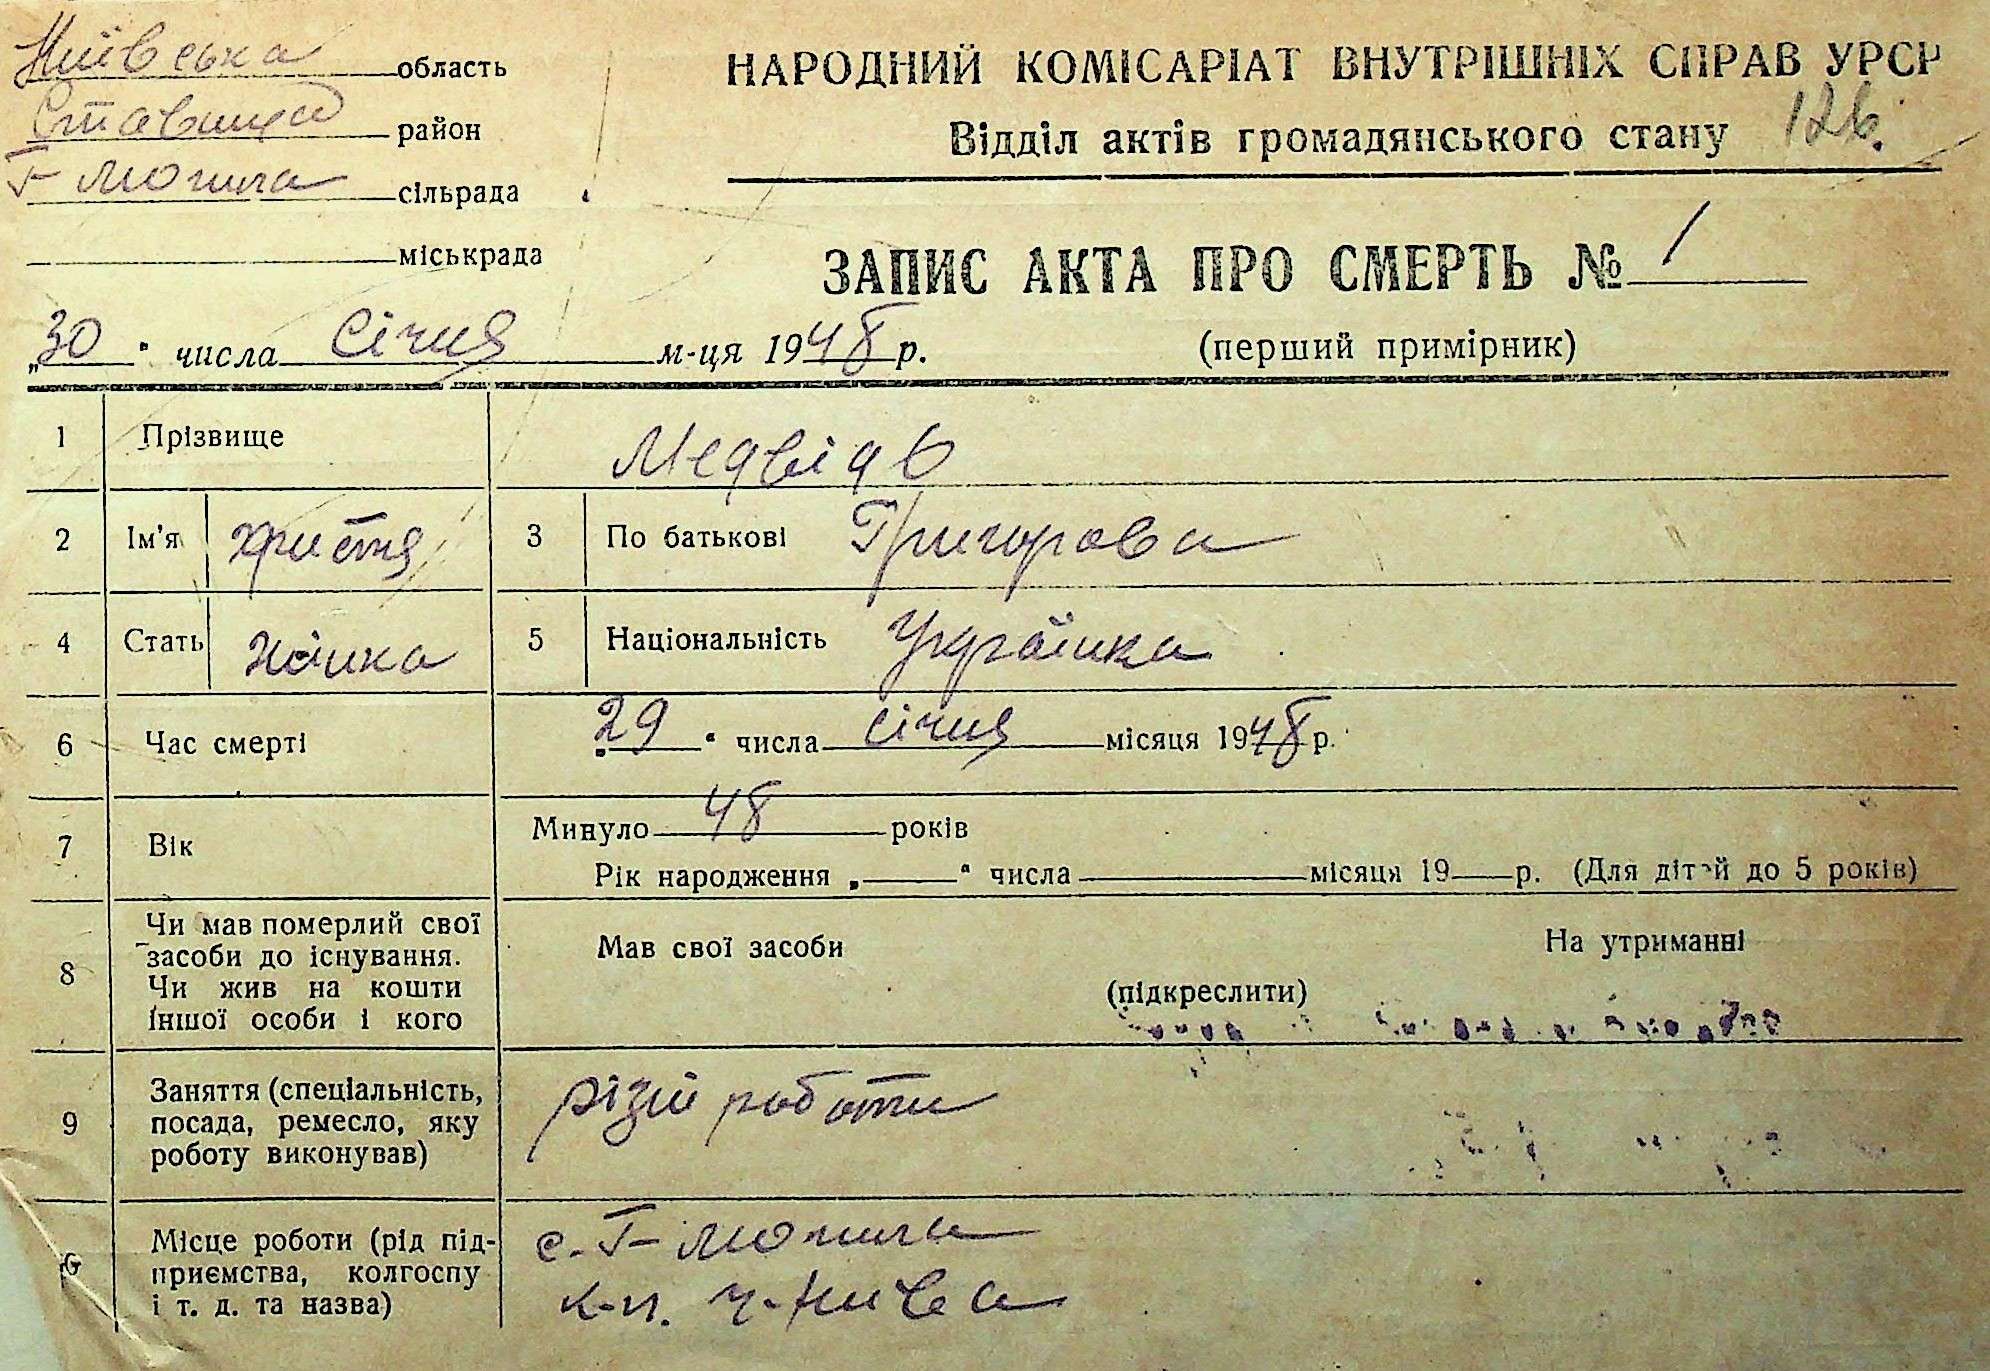 Київська область
Ставищен район
Г-Могила сільрада
міськрада
НАРОДНИЙ КОМІСАРІАТ ВНУТРІШНІХ СПРАВ УРСР
Відділ актів громадянського стану 126.
ЗАПИС АКТА ПРО СМЕРТЬ № 1
(перший примірник)
„30“ числа Січня м-ця 1948 р.
1 Прізвище Медвідь
2 Ім'я Христя 3 По батькові Григорова
4 Стать Жінка 5 Національність Українка
6 Час смерті „29“ числа січня місяця 1948 р.
7 Вік Минуло 48 років
Рік народження „ “ числа місяця 19 р. (Для дітей до 5 років)
8 Чи мав померлий свої засоби до існування. Чи жив на кошти іншої особи і кого
Мав свої засоби На утриманні
(підкреслити)
9 Заняття (спеціальність, посада, ремесло, яку роботу виконував) різні роботи
Місце роботи (рід підприємства, колгоспу і т. д. та назва) с. Г-Могила
к-п. Ч-Нива